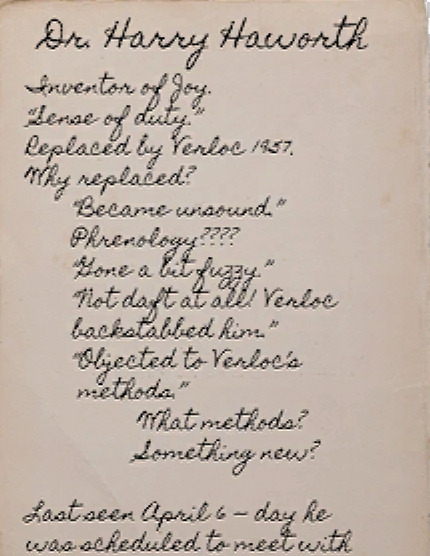 Dr. Harry Haworth
Inventor of Joy.
"Sense of duty."
Replaced by Verloc 1957.
Why replaced?
"Became unsound."
Phrenology????
"Gone a bit fuzzy."
"Not daft at all! Verloc
backstabbed him."
"Objected to Verloc's
methods."
What methods?
Something new?
Last seen April 6 – day he
was scheduled to meet with